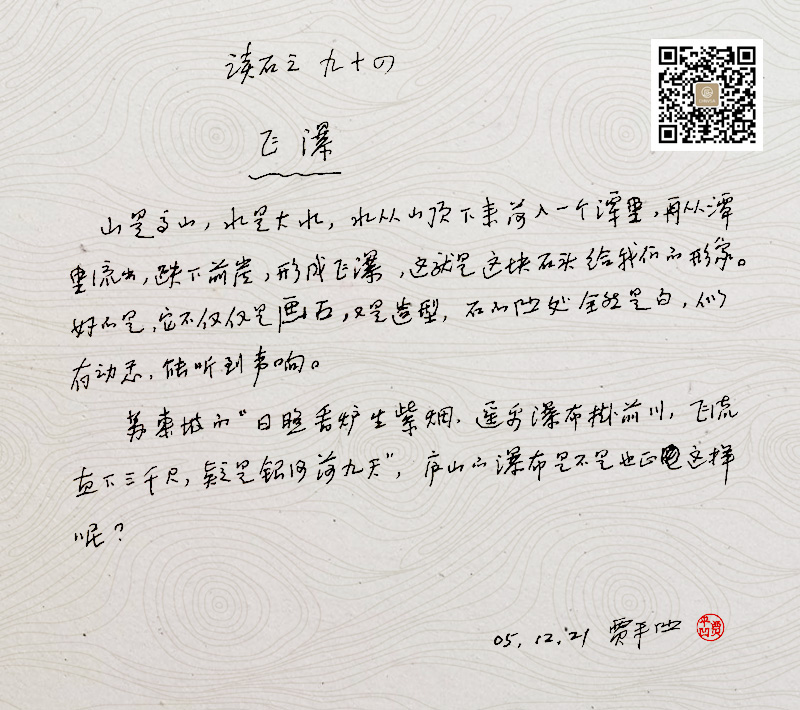 读石之九十四
飞瀑
山是高山，水是大水，水从山顶下来荡入一个潭里，再从潭
里流出，跌下前崖，形成飞瀑，这就是这块石头给我们的形象。
好的是，它不仅仅是画石，又是造型，石的凹处全然是白，似
有动态，能听到声响。
苏东坡的“日照香炉生紫烟，遥看瀑布掛前川，飞流
直下三千尺，疑是银河落九天”，庐山的瀑布是不是也正是这样
呢？
05.12.21 贾平凹
贾平凹